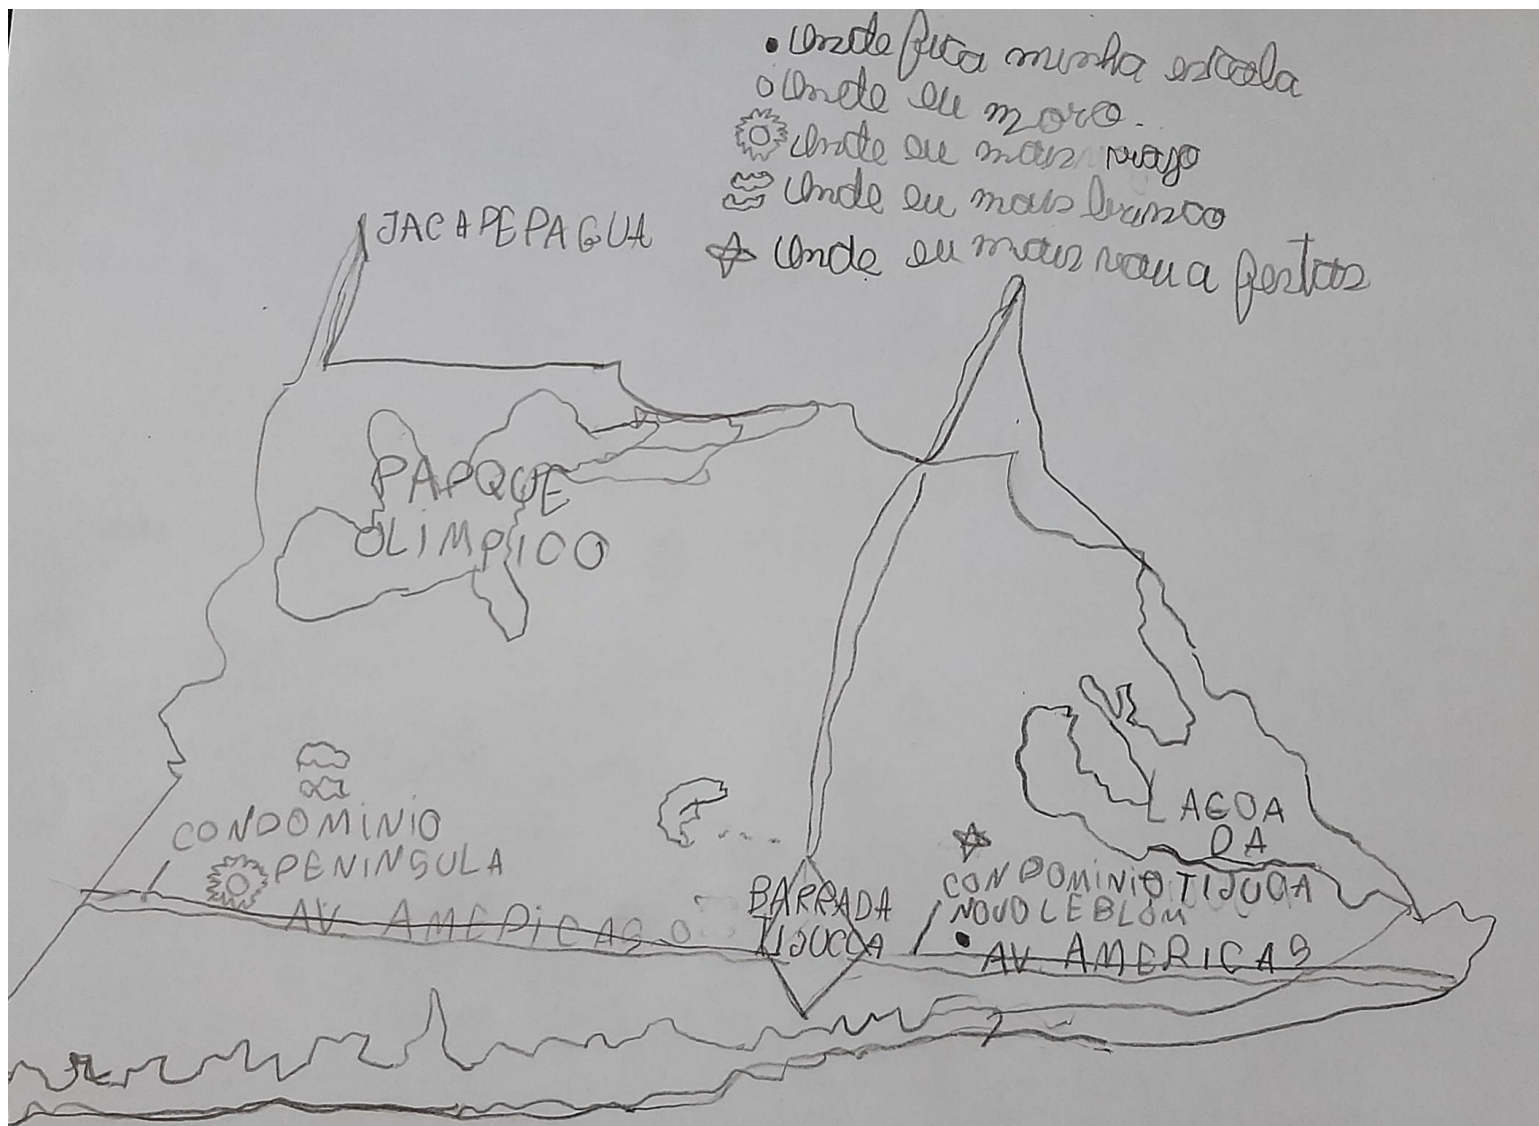 Onde fica minha escola
Onde eu moro.
Onde eu mais viajo
Onde eu mais brinco
Onde eu mais vou a festas
JACAPEPAGUA
PARQUE
OLIMPICO
CONDOMINIO
PENINSULA
AV. AMERICAS
BARRADA
TIJUCCA
LAGOA
DA
TIJUCA
CONDOMINIO
NOVO LEBLOM
AV. AMERICAS